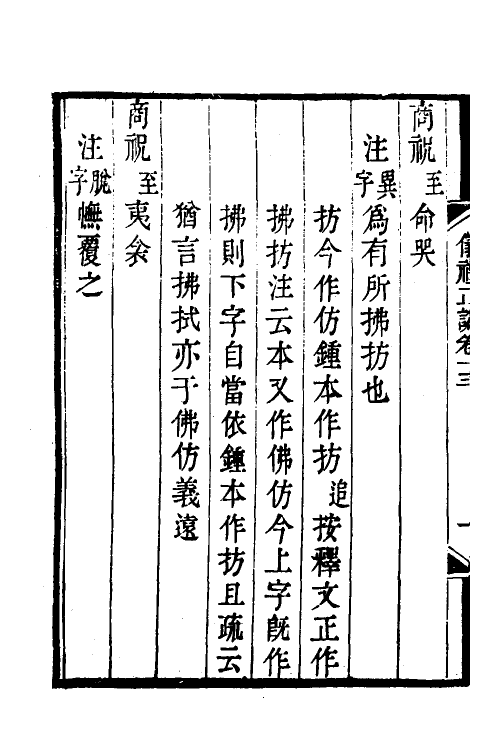 儀禮正譌卷十三
一
商祝至命哭
注異字為有所拂扐也
扐今作仿鍾本作扐追按釋文正作
拂扐注云本又作佛仿今上字旣作
拂則下字自當依鍾本作扐且疏云
猶言拂拭亦于佛仿義遠
商祝至夷衾
注脫字幠覆之